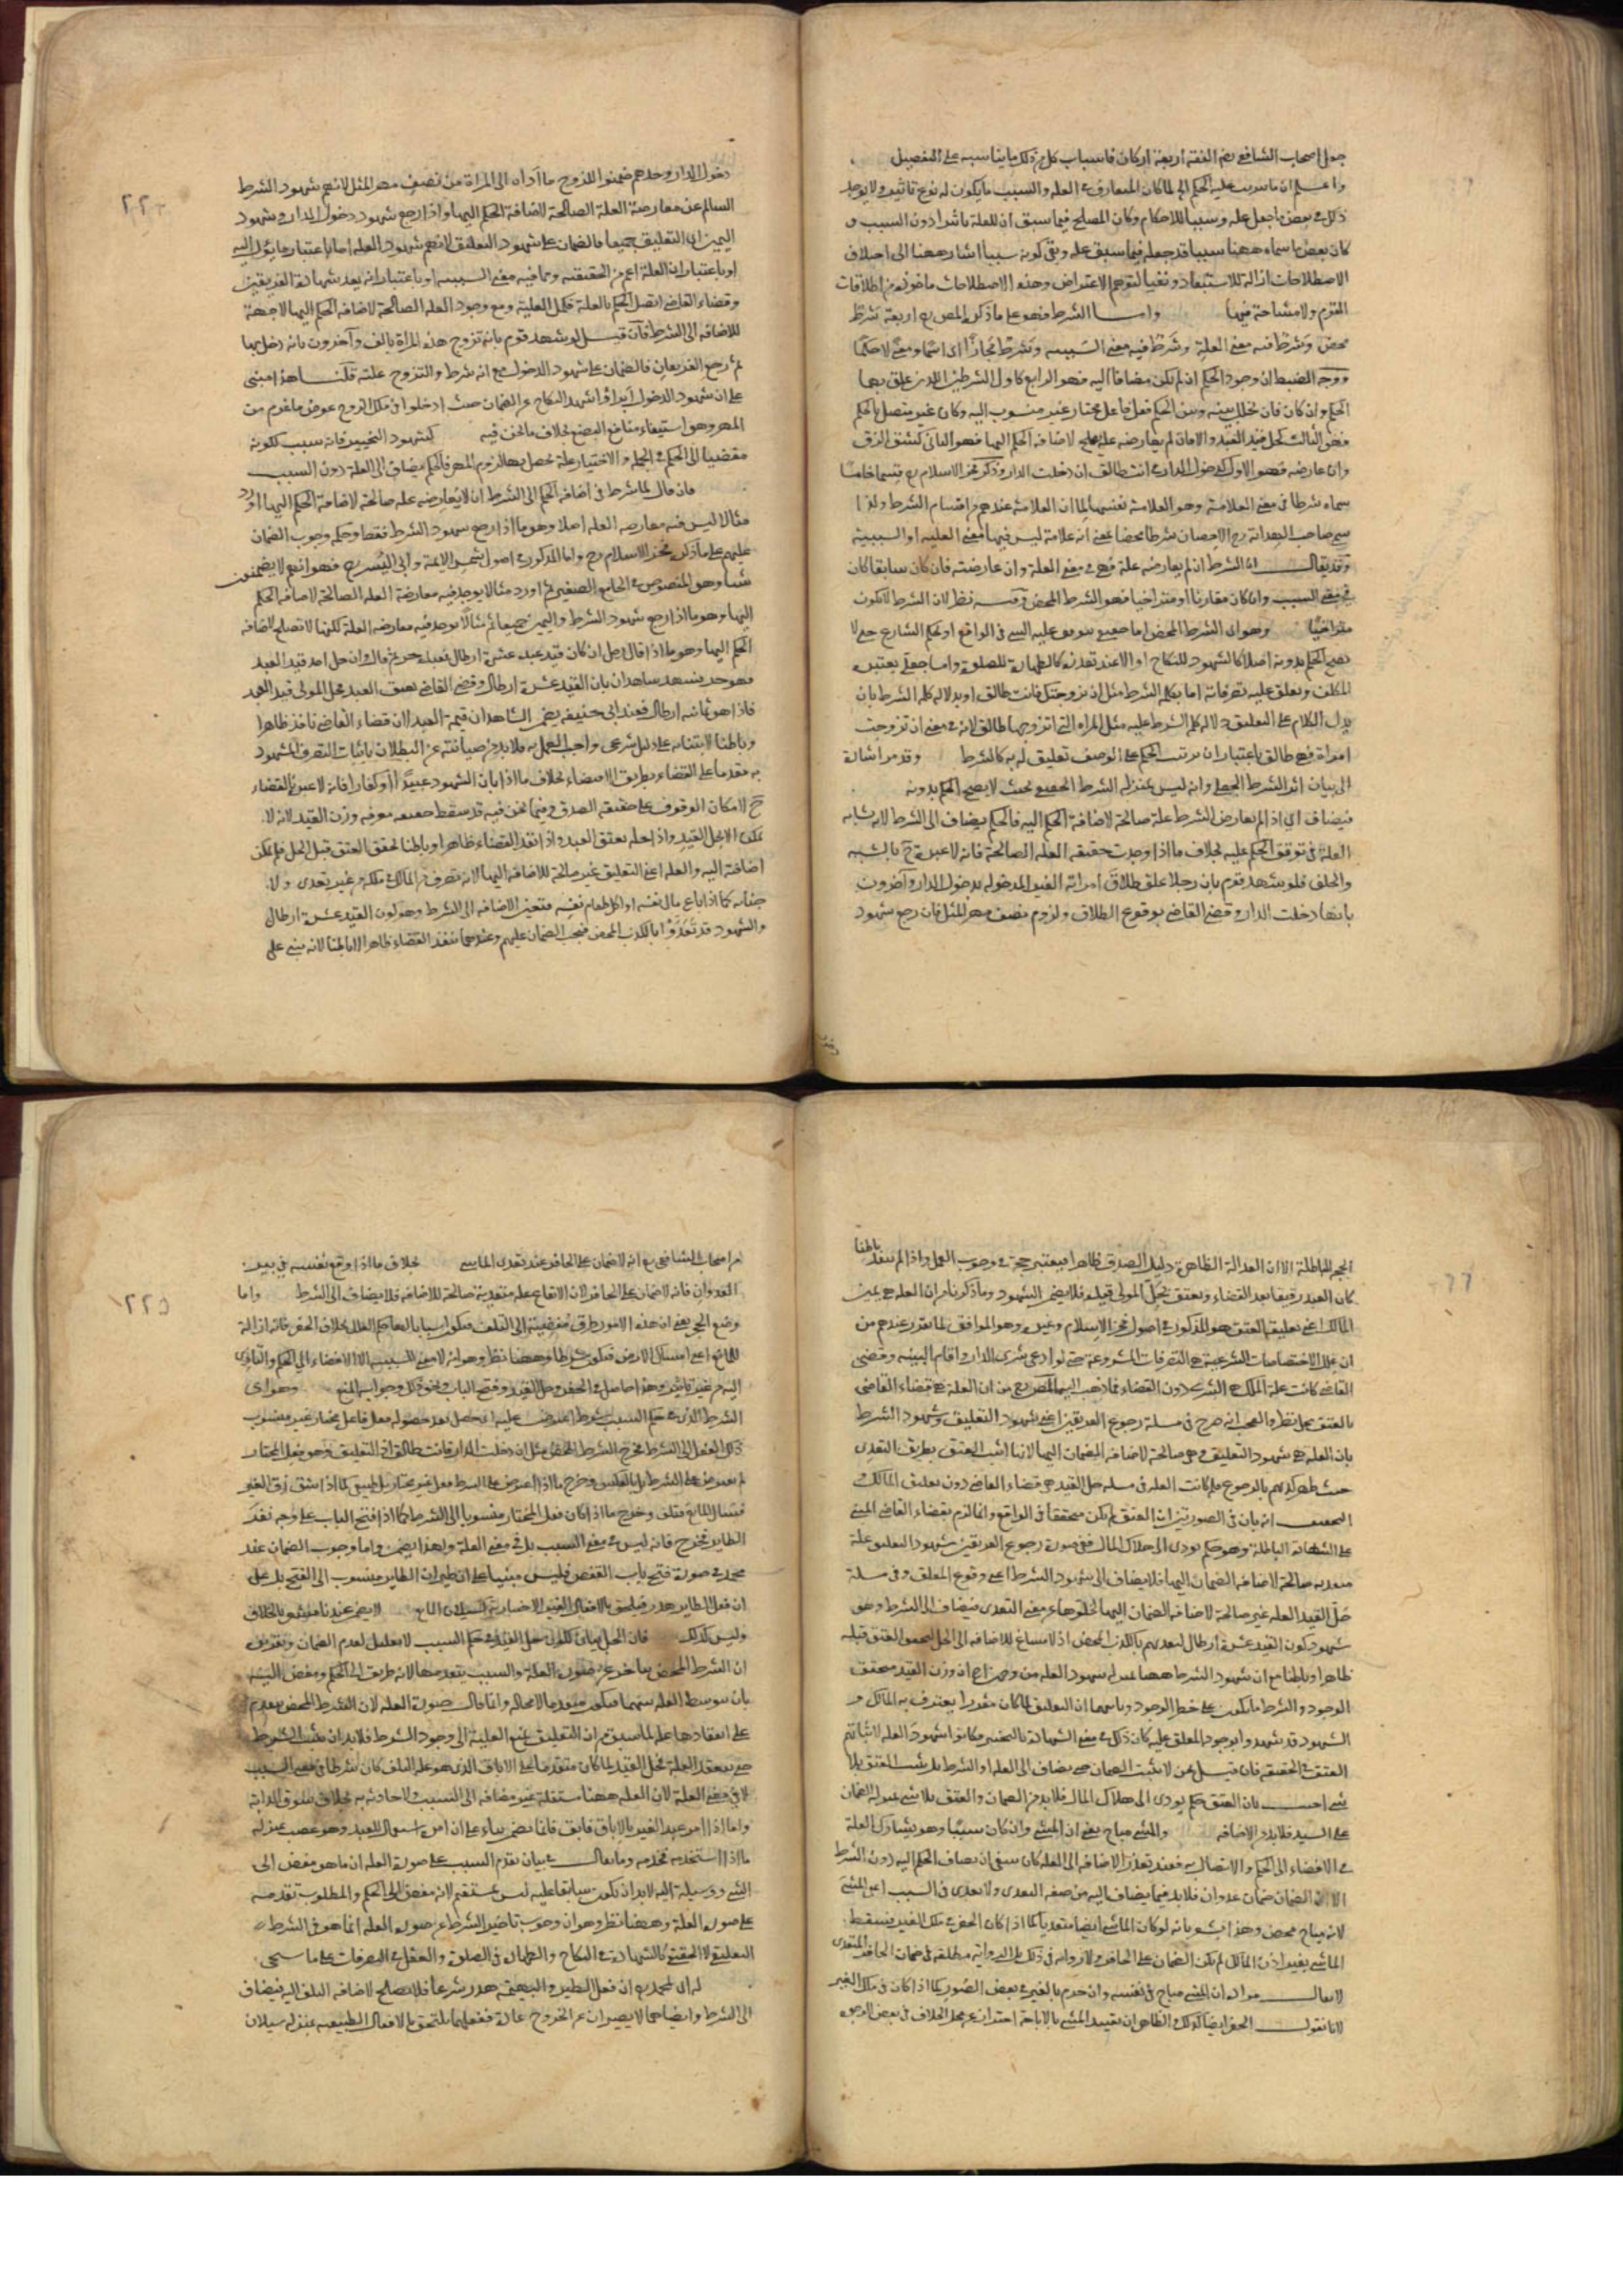 جعل اصحاب الشافعي رضه الفقه اربعة اركان فاسباب كل من ذلك ما يناسبه على التفصيل
واعلم ان ما يترتب عليه الحكم لما كان المتعارف في العلة والسبب ما يكون له نوع تاثير ولا يوجد
ذلك في بعض ما جعل علة وسببا للاحكام وكان المصطلح فيما سبق ان للعلة تاثيرا دون السبب و
كان بعض ما سماه ههنا سببا قد جعله فيما سبق علة ونفى كونه سببا اشار ههنا الى اختلاف
الاصطلاحات ازالة للاستبعاد ونفيا لتوهم الاعتراض وهذه الاصطلاحات ماخوذة من اطلاقات
القوم ولا مشاحة فيها واما الشرط فهو على ما ذكره المص رح اربعة شرط
محض وشرط فيه معنى العلية وشرط فيه معنى السببية وشرط مجازا اى اسما ومعنى لا حكما
ووجه الضبط ان وجود الحكم ان لم يكن مضافا اليه فهو الرابع كاول الشرطين اللذين علق بهما
الحكم وان كان فان تخلل بينه وبين الحكم فعل فاعل مختار غير منسوب اليه وكان غير متصل بالحكم
فهو الثالث كحل قيد العبد والا فان لم يعارضه علة تصلح لاضافة الحكم اليها فهو الثاني كشق الزق
وان عارضه فهو الاول كدخول الدار في انت طالق ان دخلت الدار وذكر فخر الاسلام رح قسما خامسا
سماه شرطا في معنى العلامة وهو العلامة نفسها لما ان العلامة عندهم من اقسام الشرط ولذا
سمى صاحب الهداية رح الاحصان شرطا محضا بمعنى انه علامة ليس فيها معنى العلية او السببية
وقد يقال ان الشرط ان لم يعارضه علة فهو في معنى العلة وان عارضته فان كان سابقا كان
في معنى السبب وان كان مقارنا او متراخيا فهو الشرط المحض وفيه نظر لان الشرط لا يكون
متراخيا وهو اى الشرط المحض اما حقيقي يتوقف عليه الشي في الواقع او بحكم الشارع حتى لا
يصح الحكم بدونه اصلا كالشهود للنكاح او الا عند تعذره كالطهارة للصلوة واما جعلي يعتبره
المكلف ويعلق عليه تصرفاته اما بكلمة الشرط مثل ان تزوجتك فانت طالق او بدلالة كلمة الشرط بان
يدل الكلام على التعليق دلالة كلمة الشرط عليه مثل المراة التي اتزوجها طالق لانه في معنى ان تزوجت
امراة فهي طالق باعتبار ان ترتب الحكم على الوصف تعليق له به كالشرط وقد مر اشارة
الى بيان اثر الشرط الجعلي وانه ليس بمنزلة الشرط الحقيقي بحيث لا يصح الحكم بدونه
فيضاف اى اذا لم يعارض الشرط علة صالحة لاضافة الحكم اليه فالحكم يضاف الى الشرط لانه يشابه
العلة في توقف الحكم عليه بخلاف ما اذا وجدت حقيقة العلة الصالحة فانه لا عبرة ح بالشبيه
والخلف فلو شهد قوم بان رجلا علق طلاق امراته الغير المدخولة بدخول الدار وآخرون
بانها دخلت الدار وقضى القاضي بوقوع الطلاق ولزوم نصف مهر المثل فان رجع شهود
٢٢٤
دخول الدار وحدهم ضمنوا للزوج ما اداه الى المراة من نصف مهر المثل لانهم شهود الشرط
السالم عن معارضة العلة الصالحة لاضافة الحكم اليها واذا رجع شهود دخول الدار وشهود
اليمين اى التعليق جميعا فالضمان على شهود التعليق لانهم شهود العلة اما باعتبار ما يؤل اليه
او باعتبار ان العلة اعم من الحقيقية وما فيه معنى السببية او باعتبار انه بعد شهادة الفريقين
وقضاء القاضي اتصل الحكم بالعلة فكمل العلية ومع وجود العلة الصالحة لاضافة الحكم اليها لا جهة
للاضافة الى الشرط فان قيل لو شهد قوم بانه تزوج هذه المراة بالف وآخرون بانه دخل بها
ثم رجع الفريقان فالضمان على شهود الدخول مع انه شرط والتزوج علة قلنا هذا مبني
على ان شهود الدخول ابرأوا شهود النكاح عن الضمان حيث ادخلوا في ملك الزوج عوض ما غرم من
المهر وهو استيفاء منافع البضع بخلاف ما نحن فيه كشهود التخيير فانه سبب لكونه
مفضيا الى الحكم في الجملة والاختيار علة تحصل بها لزوم المهر فالحكم يضاف الى العلة دون السبب
فان قال لما شرط في اضافة الحكم الى الشرط ان لا يعارضه علة صالحة لاضافة الحكم اليها اورد
مثالا ليس فيه معارضة العلة اصلا وهو ما اذا رجع شهود الشرط فقط وحكم وجوب الضمان
عليهم على ما ذكره فخر الاسلام رح واما المذكور في اصول شمس الائمة وابى اليسر رح فهو انهم لا يضمنون
شيئا وهو المنصوص في الجامع الصغير ثم اورد مثالا يوجد فيه معارضة العلة الصالحة لاضافة الحكم
اليها وهو ما اذا رجع شهود الشرط واليمين جميعا ثم مثالا يوجد فيه معارضة العلة لكنها لا تصلح لاضافة
الحكم اليها وهو ما اذا قال رجل ان كان قيد عبده عشرة ارطال فعبده حر ثم قال وان حل احد قيد العبد
فهو حر فشهد شاهدان بان القيد عشرة ارطال وقضى القاضي بعتق العبد فحل المولى قيد العبد
فاذا هو ثمانية ارطال فعند ابى حنيفة يضمن الشاهدان قيمة العبد لان قضاء القاضي نافذ ظاهرا
وباطنا لابتنائه على دليل شرعي واجب العمل به فلا بد من صيانته عن البطلان باثبات التصرف المشهود
به مقدما على القضاء بطريق الاقتضاء بخلاف ما اذا بان الشهود عبيدا او كفارا فانه لا عبرة بالقضاء
ح لامكان الوقوف على حقيقة الصدق وفيما نحن فيه قد سقط حقيقة معرفة وزن القيد لانه لا
يمكن الا بحل القيد واذا حله يعتق العبد واذا نفذ القضاء ظاهرا وباطنا تحقق العتق قبل الحل فلم يمكن
اضافته اليه والعلة اعنى التعليق غير صالحة للاضافة اليها لانه تصرف من المالك في ملكه من غير تعدى ولا
جناية كما اذا باع مال نفسه او اكل طعام نفسه فتعين الاضافة الى الشرط وهو كون القيد عشرة ارطال
والشهود قد تعدوا بالكذب المحض فيجب الضمان عليهم وعندهما ينفذ القضاء ظاهرا لا باطنا لانه بنى على
الحجة الباطلة الا ان العدالة الظاهرة دليل الصدق ظاهرا فيعتبر حجة في وجوب العمل واذا لم ينفذ باطنا
كان العبد رقيقا بعد القضاء ويعتق بحل المولى قيده فلا يضمن الشهود وما ذكرنا من ان العلة هي يمين
المالك اعنى تعليقه العتق هو المذكور في اصول فخر الاسلام وغيره وهو الموافق لما تقرر عندهم من
ان علل الاختصاصات الشرعية هي التصرفات المشروعة حتى لو ادعى شرى الدار واقام البينة وقضى
القاضي كانت علة الملك هي الشرى دون القضاء فما ذهب اليه المص رح من ان العلة هي قضاء القاضي
بالعتق محل نظر والعجب انه صرح في مسئلة رجوع الفريقين اعنى شهود التعليق وشهود الشرط
بان العلة هي شهود التعليق وهي صالحة لاضافة الضمان اليها لانها اثبت العتق بطريق التعدى
حيث ظهر كذبهم بالرجوع فلم كانت العلة في مسئلة حل القيد هي قضاء القاضي دون تعليق المالك و
التحقيق انه بان في الصورتين ان العتق لم يكن متحققا في الواقع وانما لزم بقضاء القاضي المبنى
على الشهادة الباطلة وهو حكم يودى الى هلاك المال ففى صورة رجوع الفريقين شهود التعليق علة
متعدية صالحة لاضافة الضمان اليها فلا يضاف الى شهود الشرط اعنى وقوع المعلق وفى مسئلة
حل القيد العلة غير صالحة لاضافة الضمان اليها لخلوها عن معنى التعدى فيضاف الى الشرط وهو
شهود كون القيد عشرة ارطال لتعديهم بالكذب المحض اذ لا مساغ للاضافة الى الحل لتحقق العتق قبله
ظاهرا وباطنا
الوجود والشرط ما يكون على خطر الوجود
الشهود قد شهدوا بوجود المعلق عليه كان ذلك في معنى الشهادة بالتنجيز فكانوا شهود العلة لاثباتهم
العتق في الحقيقة فان قيل
على السيد فلا بد من الاضافة والمشي مباح يعنى ان المشي وان كان سببا وهو يشارك العلة
في الافضاء الى الحكم والاتصال به فعند تعذر الاضافة الى العلة كان ينبغي ان يضاف الحكم اليه دون الشرط
الا ان الضمان ضمان عدوان فلا بد فيما يضاف اليه من صفة التعدى ولا تعدى في السبب اعنى المشي
لانه مباح محض وهذا يشعر بانه لو كان الماشي ايضا متعديا كما اذا كان الحفر في ملك الغير فسقط
الماشي بغير اذن المالك لم يكن الضمان على الحافر ولا رواية في ذلك بل الرواية مطلقة في ضمان الحافر المتعدى
لا يقال مراده ان المشي مباح في نفسه وان حرم بالغير في بعض الصور كما اذا كان في ملك الغير
لانا نقول الحفر ايضا كذلك والظاهر ان تقييد المشي بالاباحة احتراز عن محل الخلاف في بعض الوجوه
٢٢٥
من اصحاب الشافعي رح انه لا ضمان على الحافر عند تعدى الماشي بخلاف ما اذا اوقع نفسه في بير
العدوان فانه لا ضمان على الحافر لان الايقاع علة متعدية صالحة للاضافة فلا يضاف الى الشرط واما
وضع الحجر يعنى ان هذه الامور طرق مفضية الى التلف فيكون اسبابا
للمانع اعنى امساك الارض فيكون شرطا وههنا نظر وهو انه لا معنى للسببية الا الافضاء الى الحكم والتادى
اليه من غير تاثير وهذا حاصل في الحفر وحل القيد وفتح الباب ونحو ذلك وجوابه المنع وهو اى
الشرط الذى في حكم السبب شرط اعترض عليه اى حصل بعد حصوله فعل فاعل مختار غير منسوب
ذلك الفعل الى الشرط فخرج الشرط المحض مثل ان دخلت الدار فانت طالق اذ التعليق وهو فعل المختار
لم يعترض على الشرط بل بالعكس وخرج ما اذا اعترض على الشرط فعل غير مختار بل طبيعي كما اذا شق زق الغير
فسال المايع فتلف وخرج ما اذا كان فعل المختار منسوبا الى الشرط كما اذا فتح الباب على وجه نفر
الطاير فخرج فانه ليس في معنى السبب بل في معنى العلة ولهذا يضمن واما وجوب الضمان عند
محمد في صورة فتح باب القفص فليس مبنيا على ان طيران الطاير منسوب الى الفتح بل على
ان فعل الطاير هدر فيلحق بالافعال الغير الاختيارية كسيلان المايع لا يضمن عندنا
وليس كذلك
ان الشرط المحض يتاخر عن صورة العلة والسبب يتقدمها لانه طريق الى الحكم ومفض اليه
بان يتوسط العلة بينهما فيكون متقدما لا محالة وانما قال صورة العلة لان الشرط المحض يتقدم
على انعقادها علة لما سبق من ان التعليق يمنع العلية الى وجود الشرط فلا بد ان يثبت الشرط
حتى ينعقد العلة فحل القيد لما كان متقدما على الاباق الذى هو علة التلف كان شرطا في معنى السبب
لا في معنى العلة لان العلة ههنا مستقلة غير مضافة الى السبب ولا حادثة به بخلاف سوق الدابة
واما اذا امر عبد الغير بالاباق فابق فانما يضمن بناء على ان امره استعمال للعبد وهو غصب بمنزلة
ما اذا استخدمه فخدمه وما يقال في بيان تقدم السبب على صورة العلة ان ما هو مفض الى
الشي ووسيلة اليه لا بد ان يكون سابقا عليه ليس بمستقيم لانه مفض الى الحكم والمطلوب تقدمه
على صورة العلة وههنا نظر وهو ان وجوب تاخير الشرط عن صورة العلة انما هو في الشرط
التعليقي لا الحقيقي كالشهادة في النكاح والطهارة في الصلوة والعقل في التصرفات على ما سيجى
له اى لمحمد رح ان فعل الطير والبهيمة هدر شرعا فلا يصلح لاضافة التلف اليه فيضاف
الى الشرط وايضا هما لا يصبران عن الخروج عادة ففعلهما يلتحق بالافعال الطبيعية بمنزلة سيلان